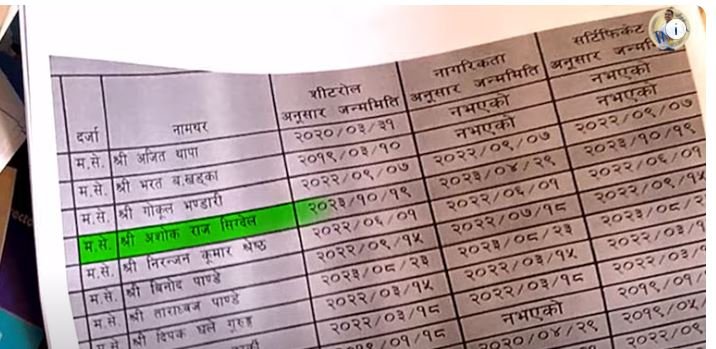 दर्जा नामथर शीटरोल अनुसार जन्ममिति नागरिकता अनुसार जन्ममिति सर्टिफिकेट अनुसार जन्ममि
म.से. श्री अजित थापा २०२०/०३/३१ नभएको नभएको
म.से. श्री भरत ब.खड्का २०१९/०३/१० नभएको नभएको
म.से. श्री गोकूल भण्डारी २०२२/०९/०७ २०२२/०९/०७ २०२२/०९/०७
म.से. श्री अशोक राज सिग्देल २०२३/१०/१९ २०२३/०४/२९ २०२३/१०/१९
म.से. श्री निरन्जन कुमार श्रेष्ठ २०२२/०६/०१ २०२२/०६/०१ २०२२/०६/०१
म.से. श्री बिनोद पाण्डे २०२२/०९/१५ २०२२/०७/१८ २०२२/०९/१५
म.से. श्री ताराध्वज पाण्डे २०२३/०८/२३ २०२३/०८/२३ २०२३/०८/२
म.से. श्री दिपक घले गुरुङ २०२२/०३/१५ २०२२/०३/१५ २०२२/०३/१
२०२२/०३/१८ २०२२/०३/१८ २०२२/०३/
/०१/१८ नभएको २०१९/०१/
२०२०/०४/२९ २०१९/०५/
२०२२/०९